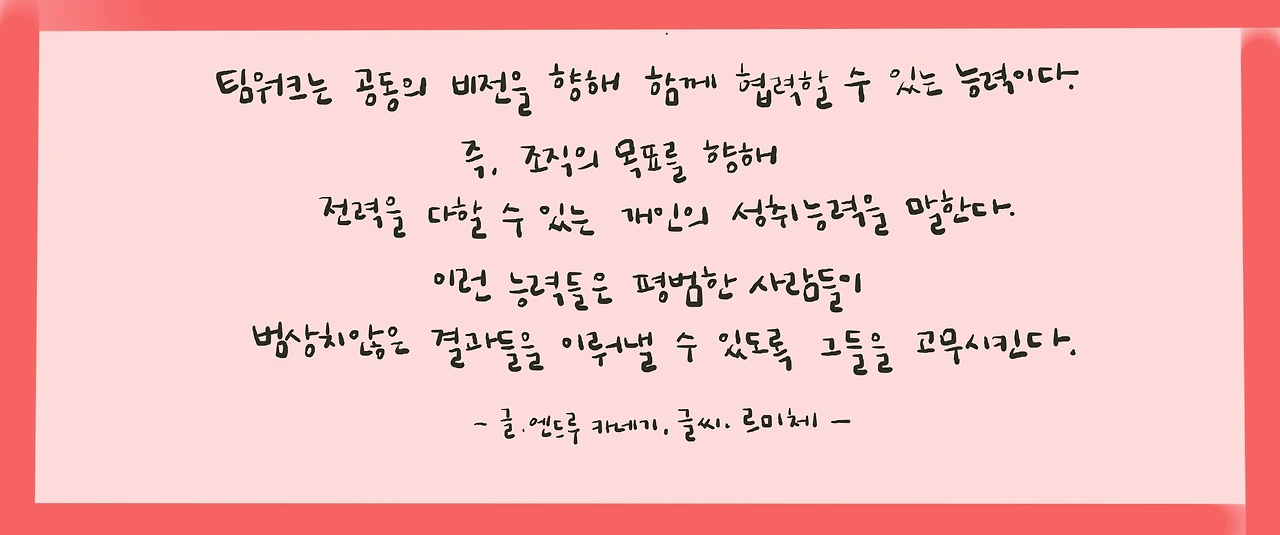 팀워크는 공동의 비전을 향해 함께 협력할 수 있는 능력이다.
즉, 조직의 목표를 향해
전력을 다할 수 있는 개인의 성취능력을 말한다.
이런 능력들은 평범한 사람들이
범상치않은 결과들을 이뤄낼 수 있도록 그들을 고무시킨다.
- 글.엔드루 카네기. 글씨. 르미체 -